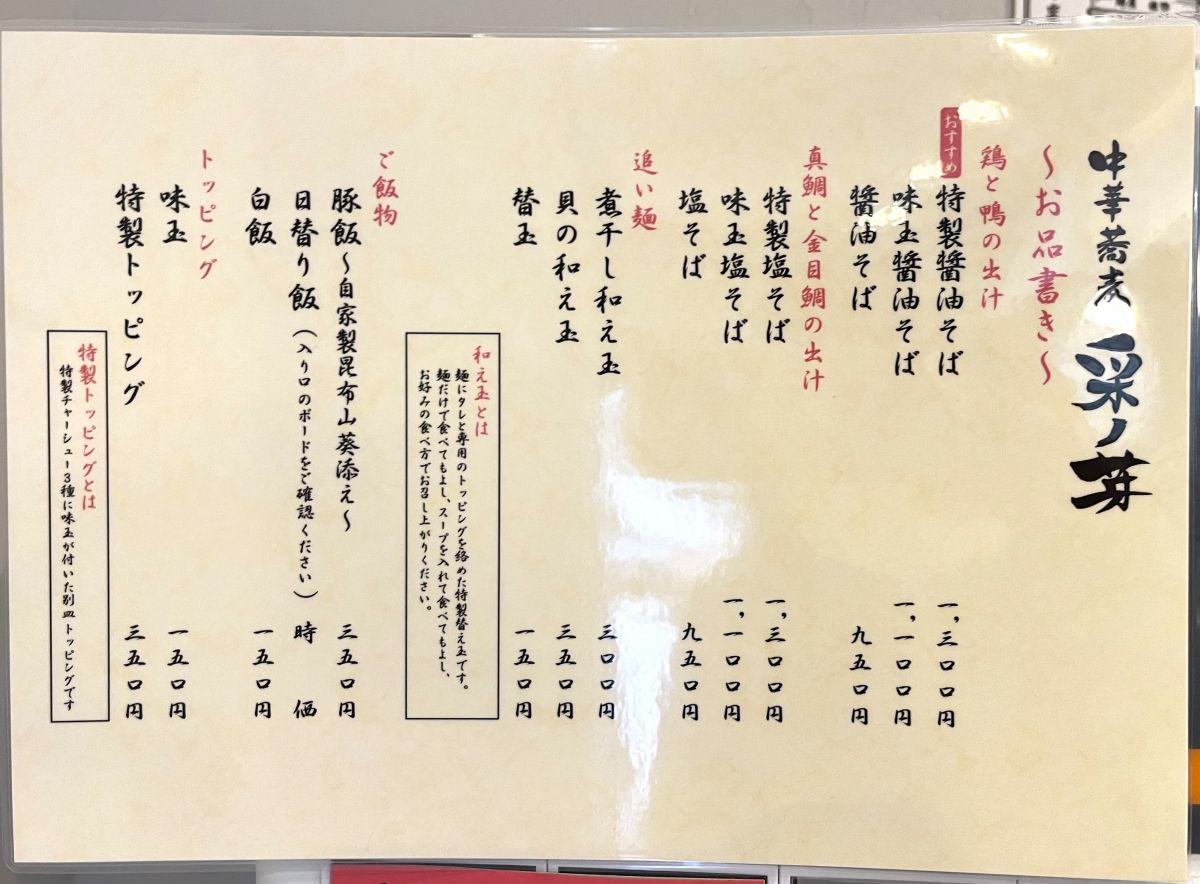 中華蕎麦 采ノ芽
〜お品書き〜
鶏と鴨の出汁
おすすめ
特製醤油そば 一,三〇〇円
味玉醤油そば 一,一〇〇円
醤油そば 九五〇円
真鯛と金目鯛の出汁
特製塩そば 一,三〇〇円
味玉塩そば 一,一〇〇円
塩そば 九五〇円
追い麺
煮干し和え玉 三〇〇円
貝の和え玉 三五〇円
替玉 一五〇円
和え玉とは
麺にタレと専用のトッピングを絡めた特製替え玉です。
麺だけで食べてもよし、スープを入れて食べてもよし、
お好みの食べ方でお召し上がりください。
ご飯物
豚飯〜自家製昆布山葵添え〜 三五〇円
日替り飯(入り口のボードをご確認ください) 時価
白飯 一五〇円
トッピング
味玉 一五〇円
特製トッピング 三五〇円
特製トッピングとは
特製チャーシュー3種に味玉が付いた別皿トッピングです